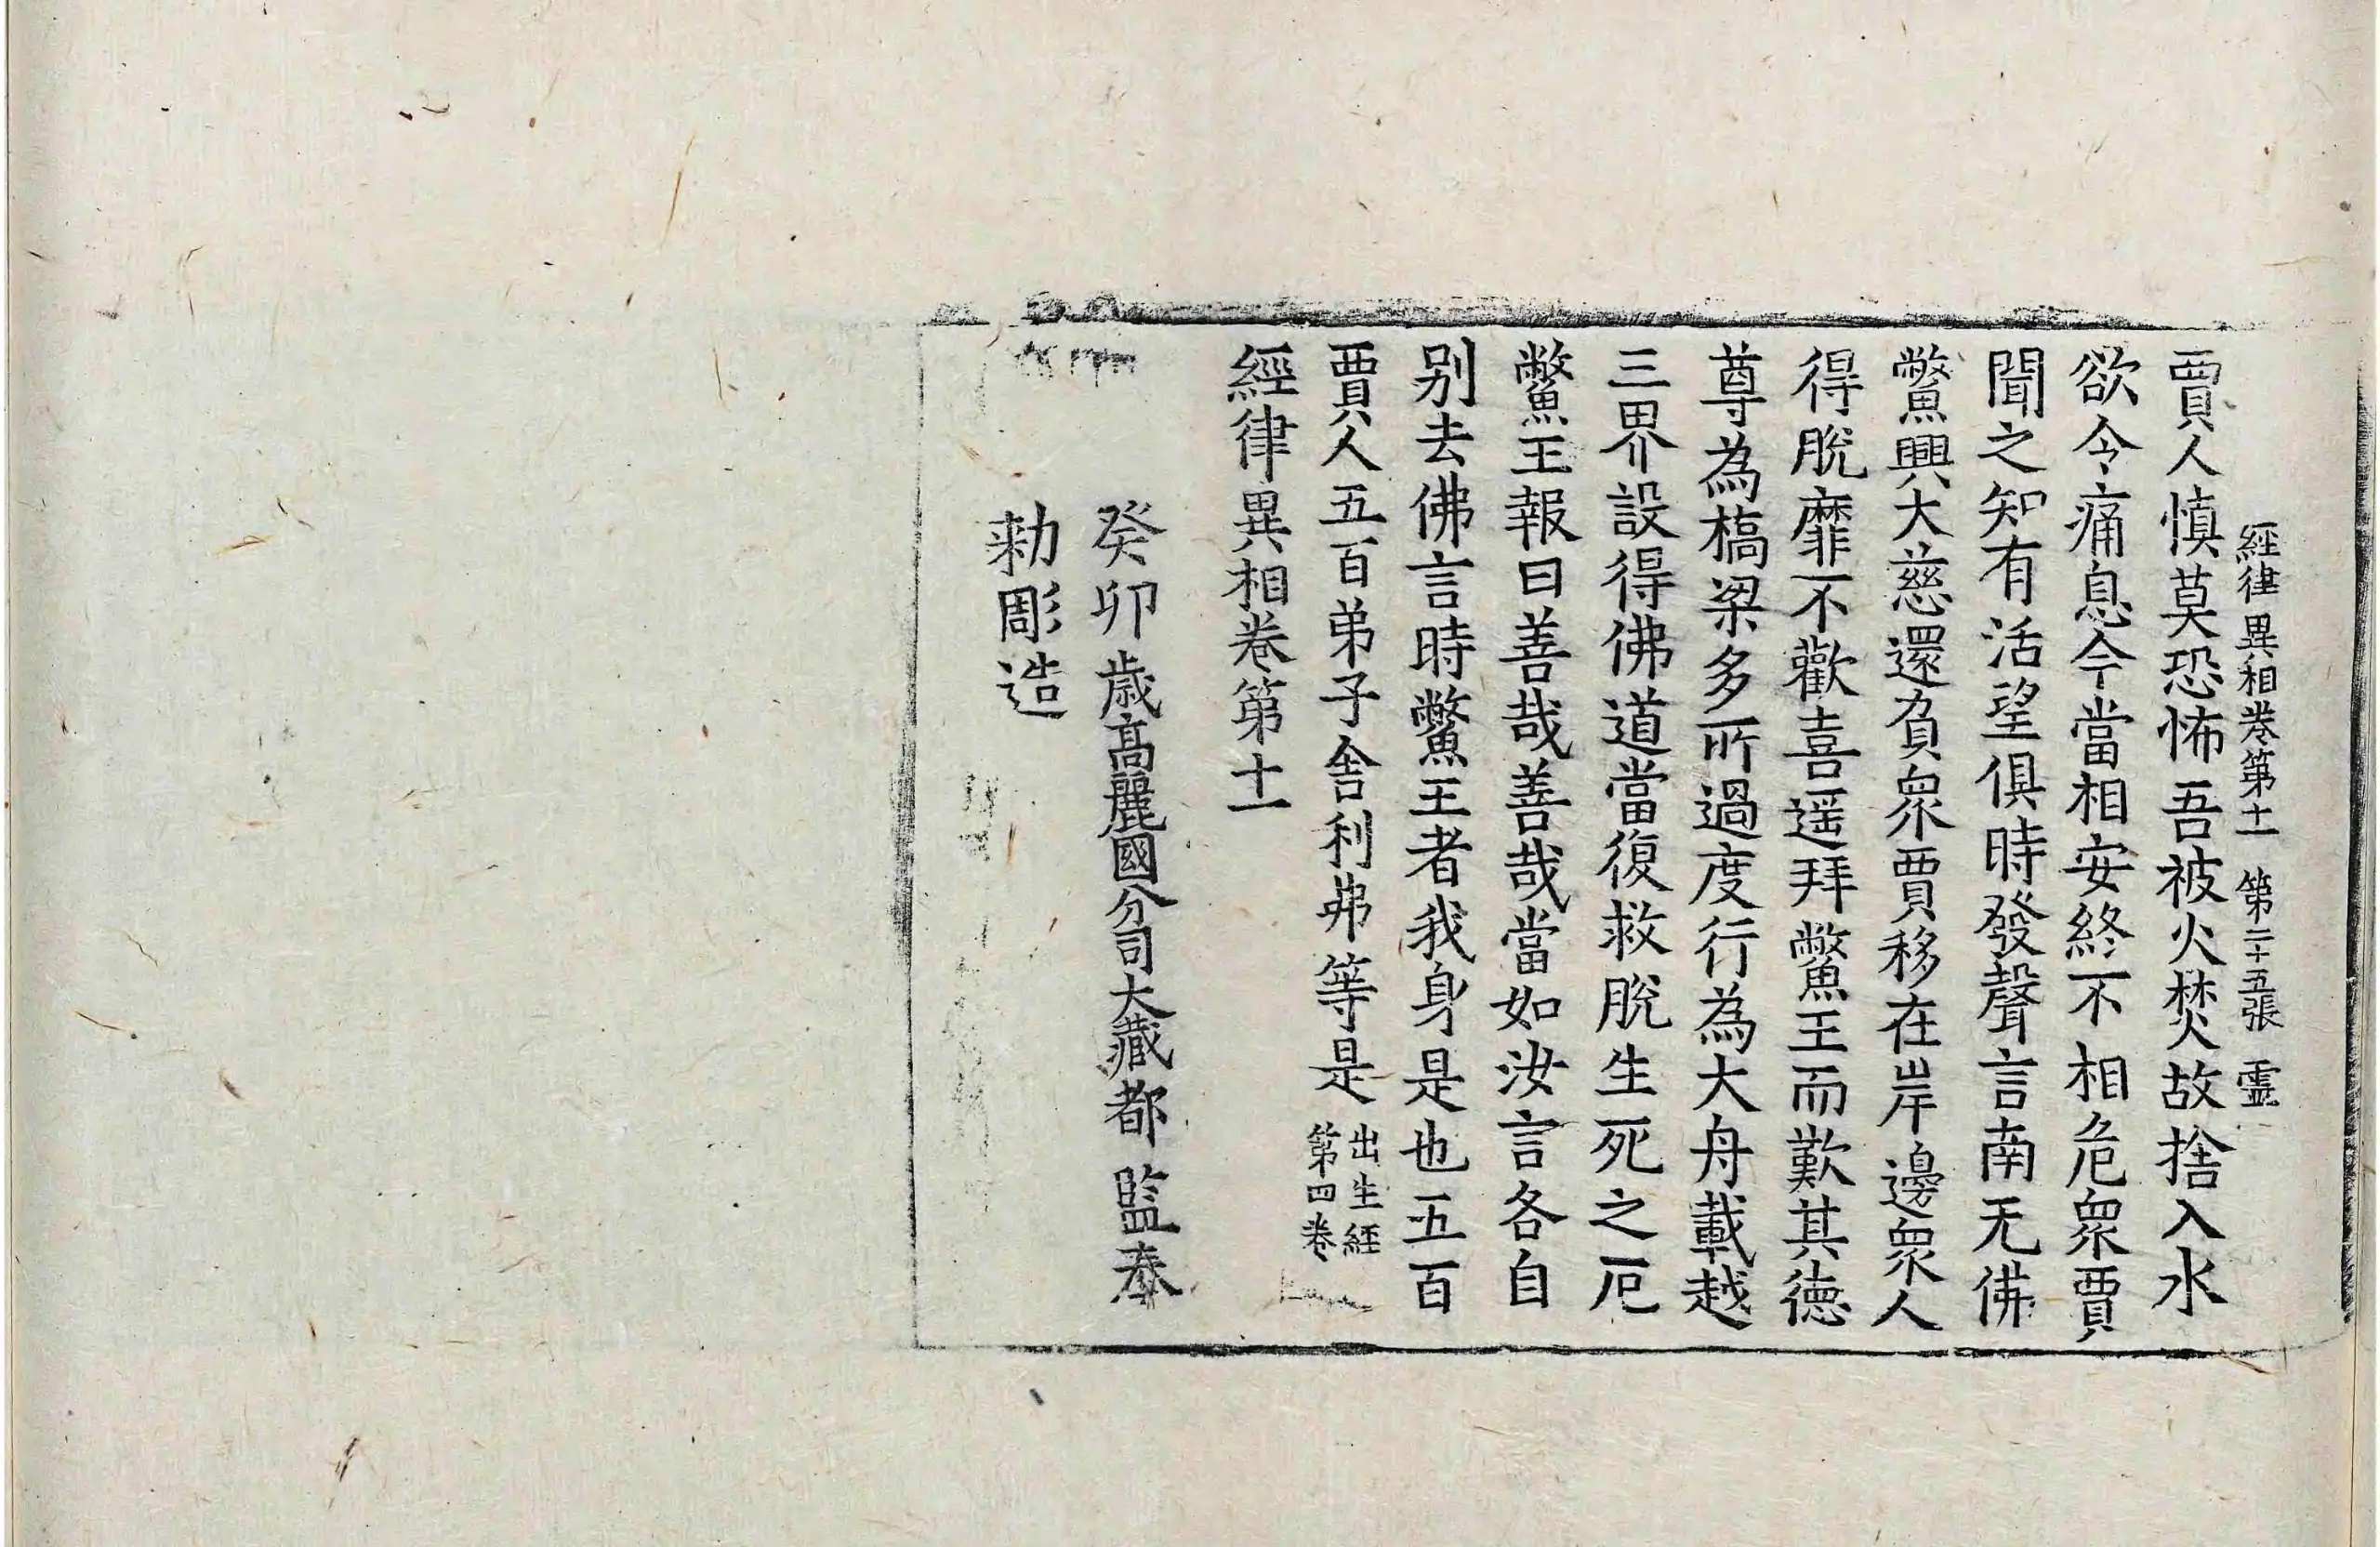 經律異相卷第十一 第二十五張 靈
賈人慎莫恐怖吾被火焚故捨入水
欲令痛息今當相安終不相危衆賈
聞之知有活望俱時發聲言南无佛
鱉興大慈還負衆賈移在岸邊衆人
得脫靡不歡喜遥拜鱉王而歎其德
尊為橋梁多所過度行為大舟載越
三界設得佛道當復救脫生死之厄
鱉王報曰善哉善哉當如汝言各自
别去佛言時鱉王者我身是也五百
賈人五百弟子舍利弗等是 出生經
第四卷
經律異相卷第十一
癸卯歳高麗國分司大藏都監奉
勑彫造